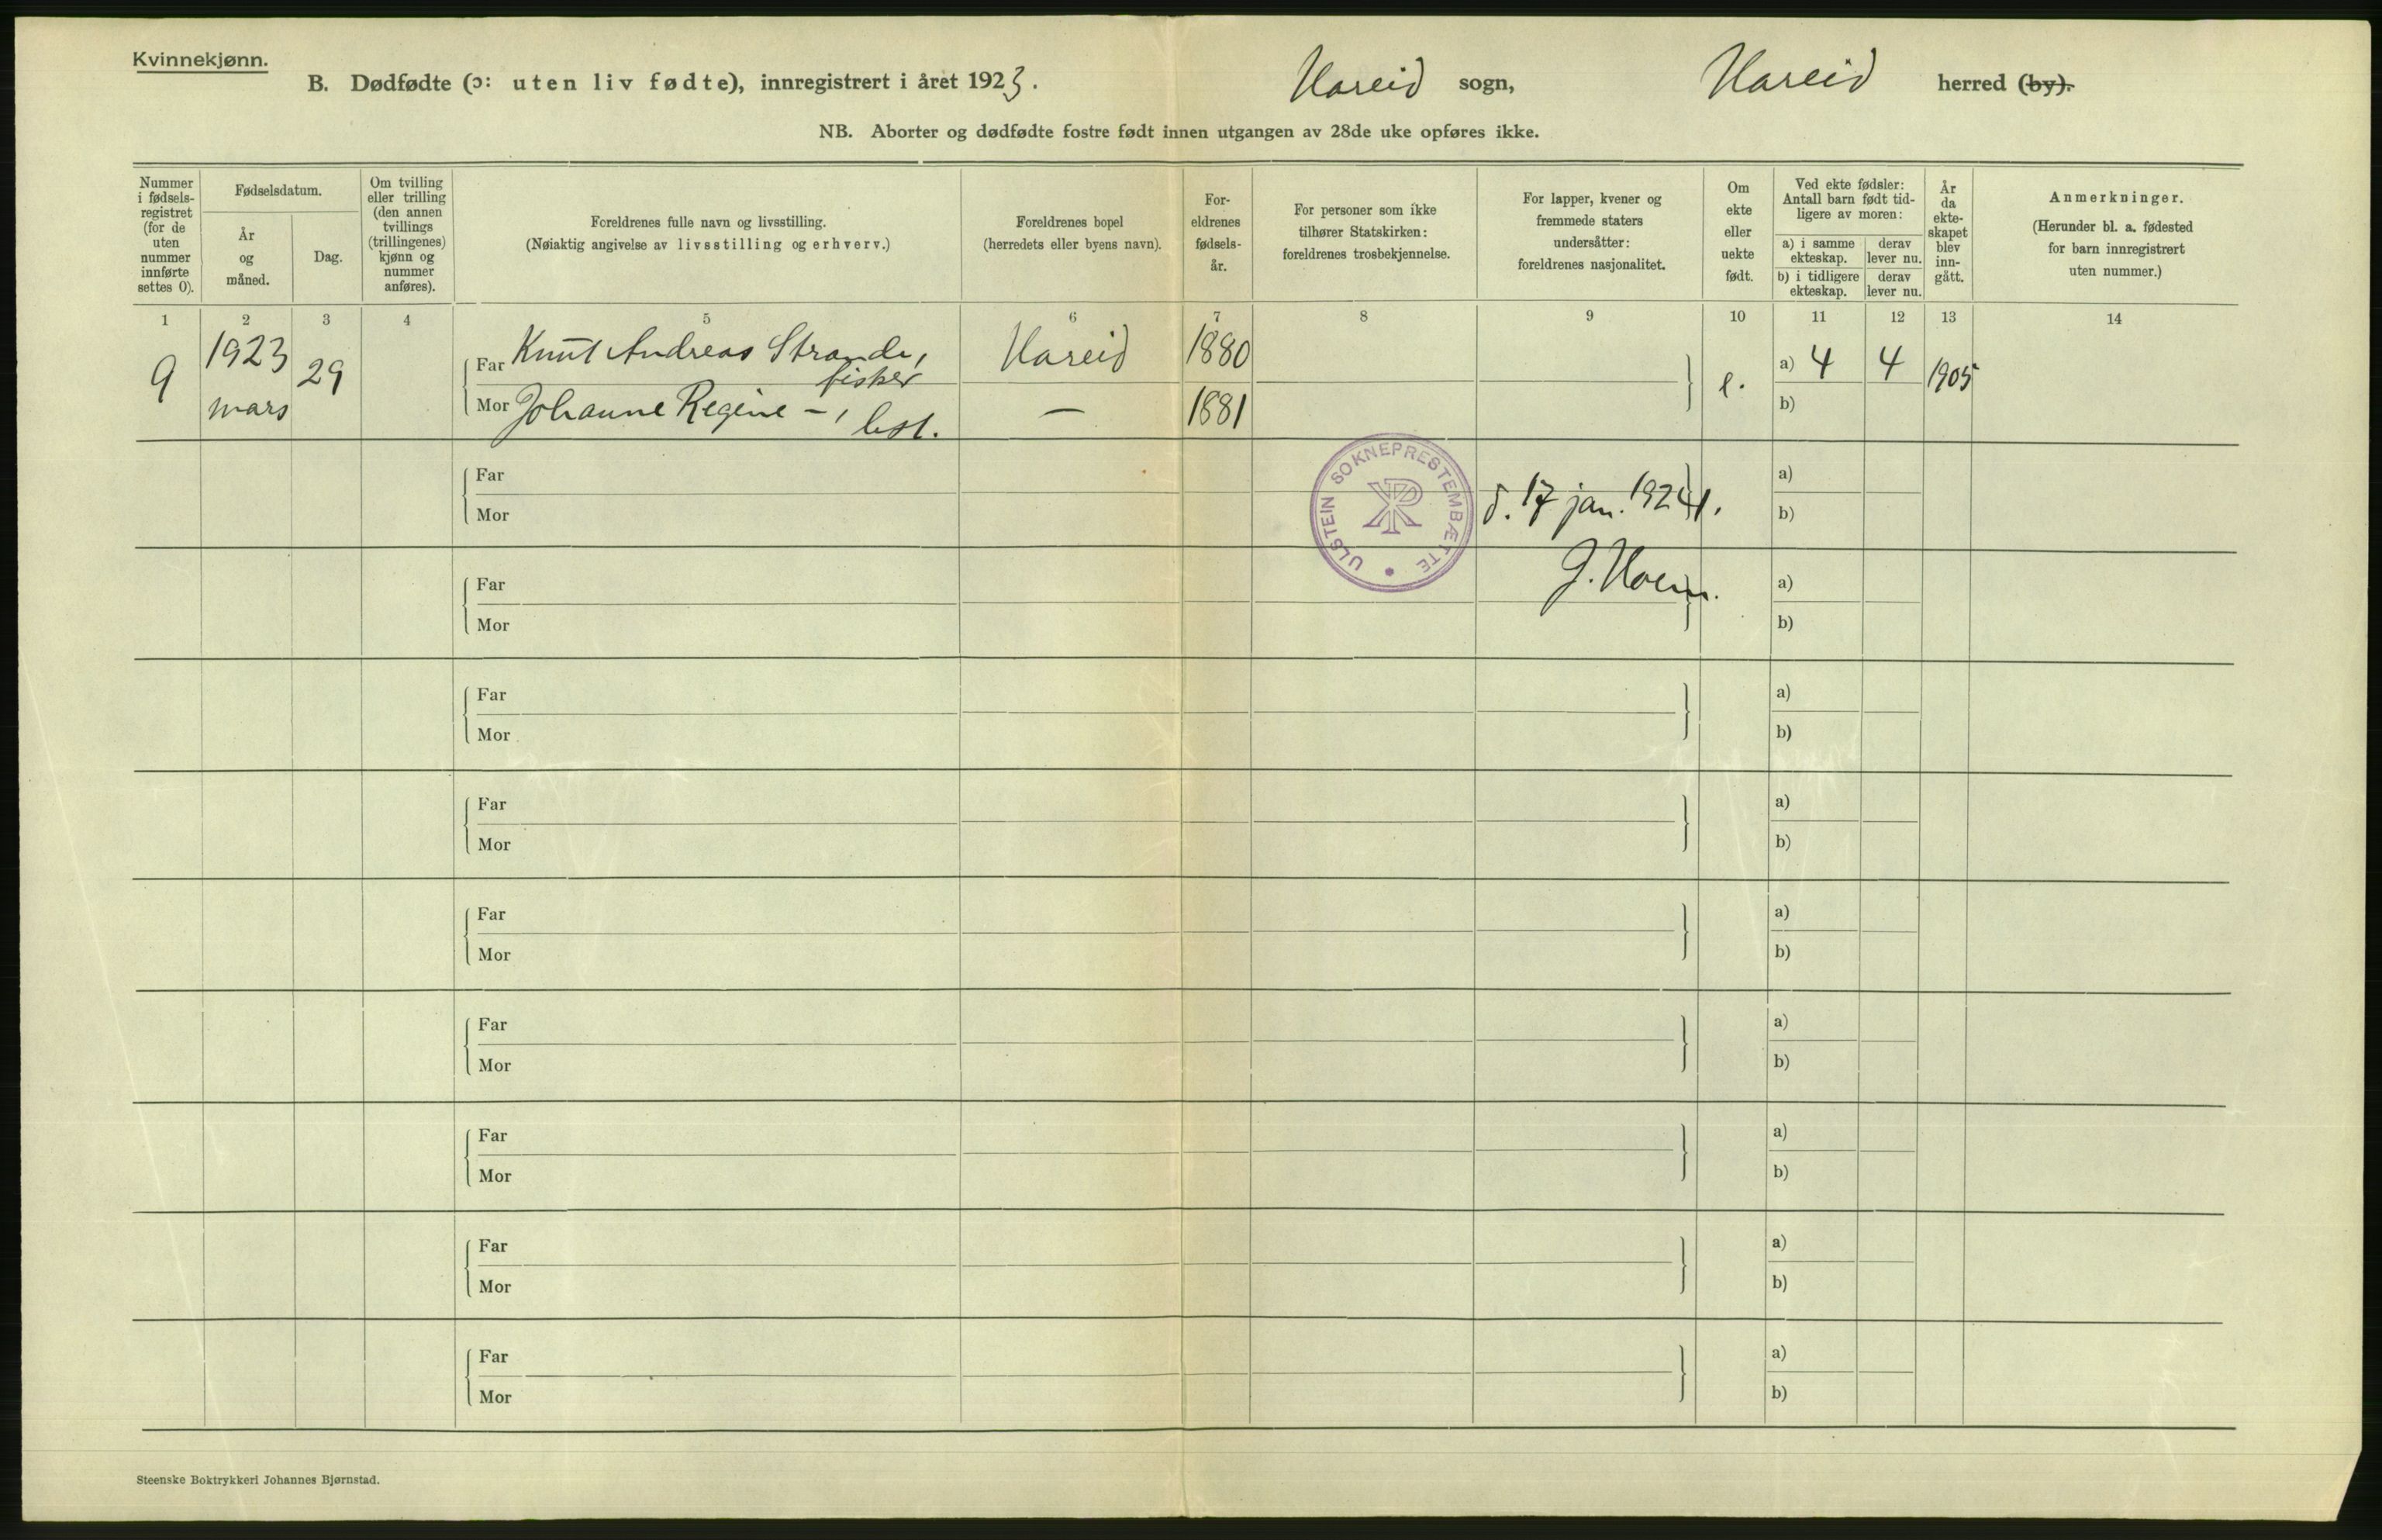 Kvinnekjønn.
B. Dødfødte (ɔ: uten liv fødte), innregistrert i året 1923. Hareid sogn, Hareid herred (by).
NB. Aborter og dødfødte fostre født innen utgangen av 28de uke opføres ikke.
Nummer i fødsels-registret (for de uten nummer innførte settes 0).
Fødselsdatum.
År og måned.
Dag.
Om tvilling eller trilling (den annen tvillings (trillingenes) kjønn og nummer anføres).
Foreldrenes fulle navn og livsstilling.
(Nøiaktig angivelse av livsstilling og erhverv.)
Foreldrenes bopel
(herredets eller byens navn).
For-eldrenes fødsels-år.
For personer som ikke tilhører Statskirken: foreldrenes trosbekjennelse.
For lapper, kvener og fremmede staters undersåtter: foreldrenes nasjonalitet.
Om ekte eller uekte født.
Ved ekte fødsler: Antall barn født tid-ligere av moren:
a) i samme ekteskap. derav lever nu.
b) i tidligere ekteskap. derav lever nu.
År da ekte-skapet blev inn-gått.
Anmerkninger.
(Herunder bl. a. fødested for barn innregistrert uten nummer.)
1 2 3 4 5 6 7 8 9 10 11 12 13 14
9 1923 mars 29 Far Knut Andreas Strande, fisker Hareid 1880 e. a) 4 4 1905
Mor Johanne Regine -, best. — 1881 b)
Far a)
Mor b)
ULSTEIN SOKNEPRESTEMBÆTTE
d. 17 jan. 1924.
Far a)
J. Hoem.
Mor b)
Far a)
Mor b)
Far a)
Mor b)
Far a)
Mor b)
Far a)
Mor b)
Far a)
Mor b)
Far a)
Mor b)
Far a)
Mor b)
Steenske Boktrykkeri Johannes Bjørnstad.